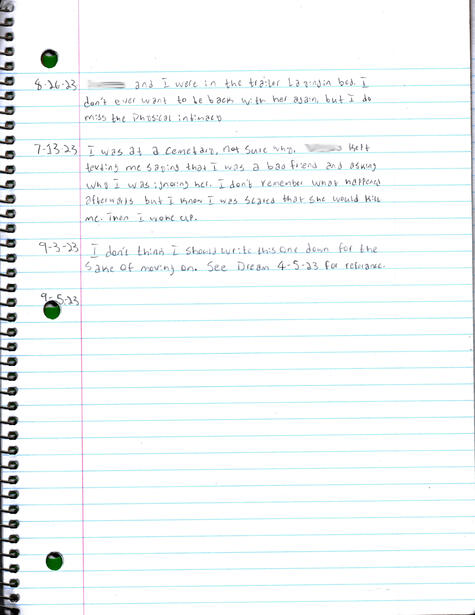 8-26-23 and I were in the trailer Layingin bed. I
don't ever want to be back with her again, but I do
miss the Physical intimacy
7-13-23 I was at a Cemetary, not Sure why. Kept
texting me saying that I was a bad friend and asking
why I was ignoring her. I don't remember what happened
afterwards but I know I was scared that she would kill
me. Then I woke up.
9-3-23 I don't think I should write this one down for the
Sake of moving on. See Dream 4-5-23 for referance.
9-5-23